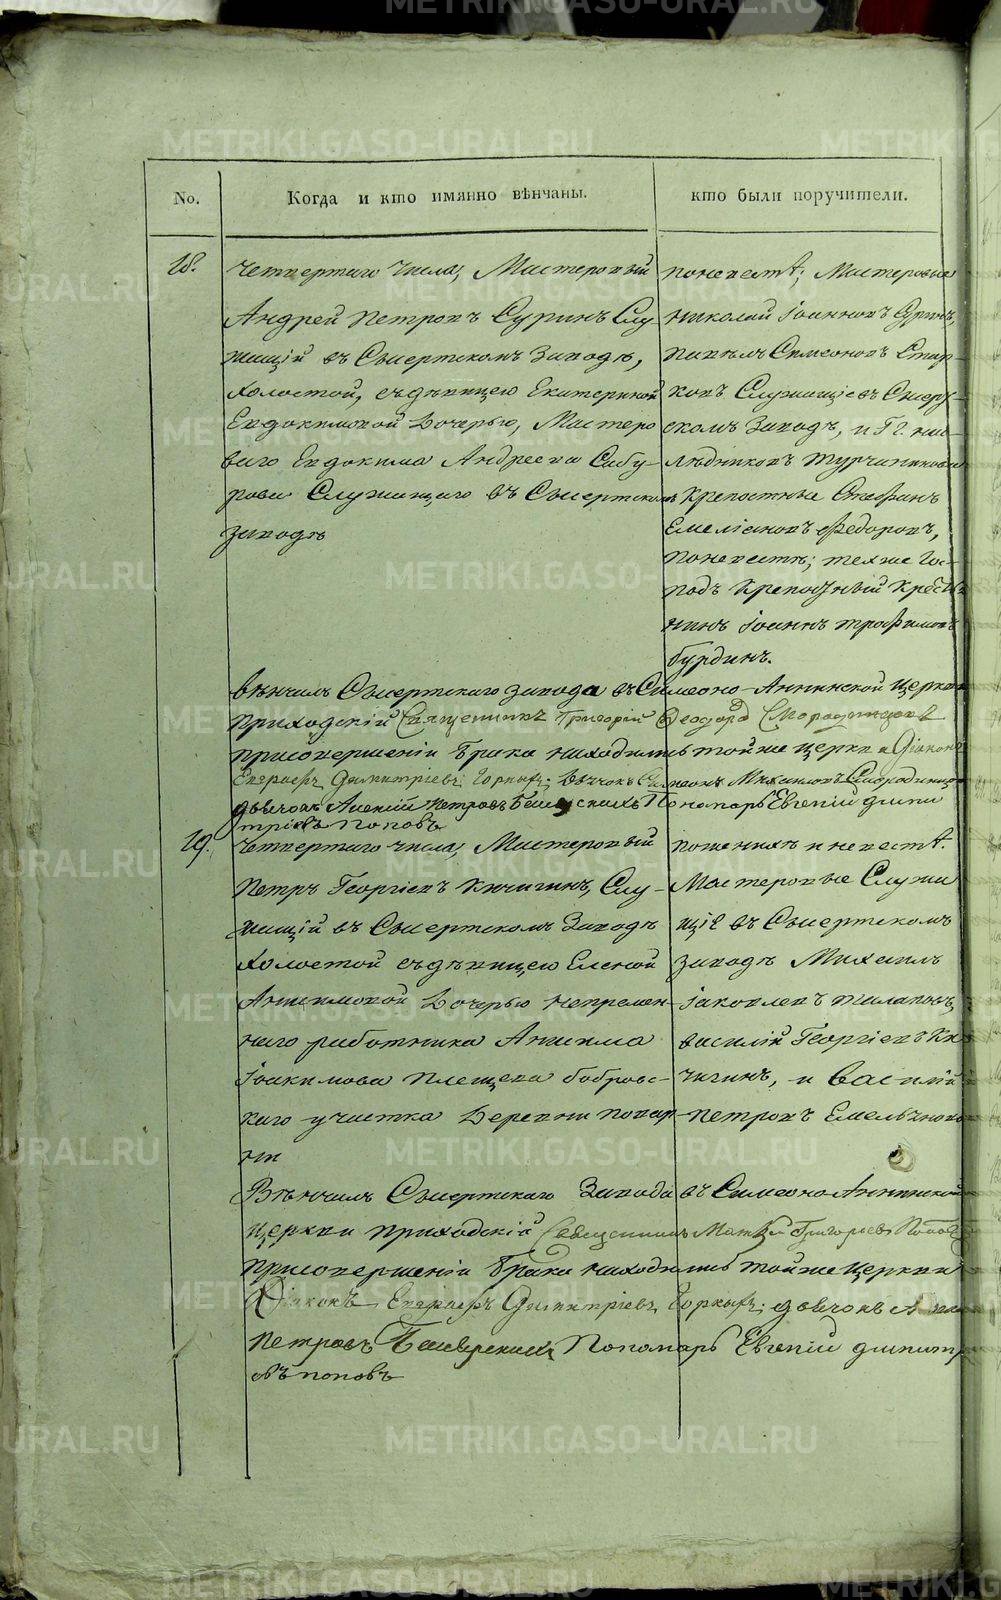 METRIKI.GASO-URAL.RU
No. Когда и кто имянно вѣнчаны. кто были поручители.
18.
Четвертаго числа, Мастеровый
Андрей Петровъ Суринъ Слу-
жащій въ Сысертскомъ Заводѣ,
холостой, съ дѣвицею Екатериной
Евдокимовой Дочерью, Мастеро
ваго Евдокима Андреева Сабу-
рова Служащаго въ Сысертскомъ
Заводѣ
поневестѣ; Мастеровые
Николай Іоанновъ Суринъ,
Симеоновъ Стар-
ковъ Служащіе въ Сысерт-
скомъ Заводѣ, и Гг. нас-
лѣдниковъ Турчаниновыхъ
Крепостные Стефанъ
Емеліановъ Федоровъ,
поневестѣ; техже Гос-
подъ Крепостный Крестья
нинъ Іоаннъ Трофимовъ
бурдинъ.
вѣнчалъ Сысертскаго завода въ Симеоно-Аннинской Церкви
приходскій Священникъ Григорій Феодоровъ Смородинцевъ
присовершеніи брака находились тойже церкви Діаконъ
Димитріевъ Горныхъ; Дьячокъ Симеонъ Михаиловъ Смородинцевъ
дьячокъ Алексій Петровъ Пономарь Евгеній дмит
тріевъ Поповъ
19.
Четвертаго числа, Мастеровый
Петръ Георгіевъ Кичигинъ, Слу-
жащій въ Сысертскомъ Заводѣ
холостой съ дѣвицею Еленой
Анисимовой Дочерью непремен-
наго работника Анисима
Іоакимова Плещева бобровс-
каго участка Деревни повар-
ни
поженихѣ и невестѣ.
Мастеровые Служа
щіе въ Сысертскомъ
заводѣ Михаилъ
Іаковлевъ
василій Георгіевъ Ки
чигинъ, и Василій
Петровъ Емельяновъ
Вѣнчалъ Сысертскаго Завода въ Симеоно Аннинской
церкви приходскій Священникъ Матѳей Григорьевъ Поповъ
присовершеніи брака находились тойже церкви
Діаконъ Димитріевъ Горныхъ; дьячокъ
Петровъ Пономарь Евгеній дмитрі
евъ поповъ